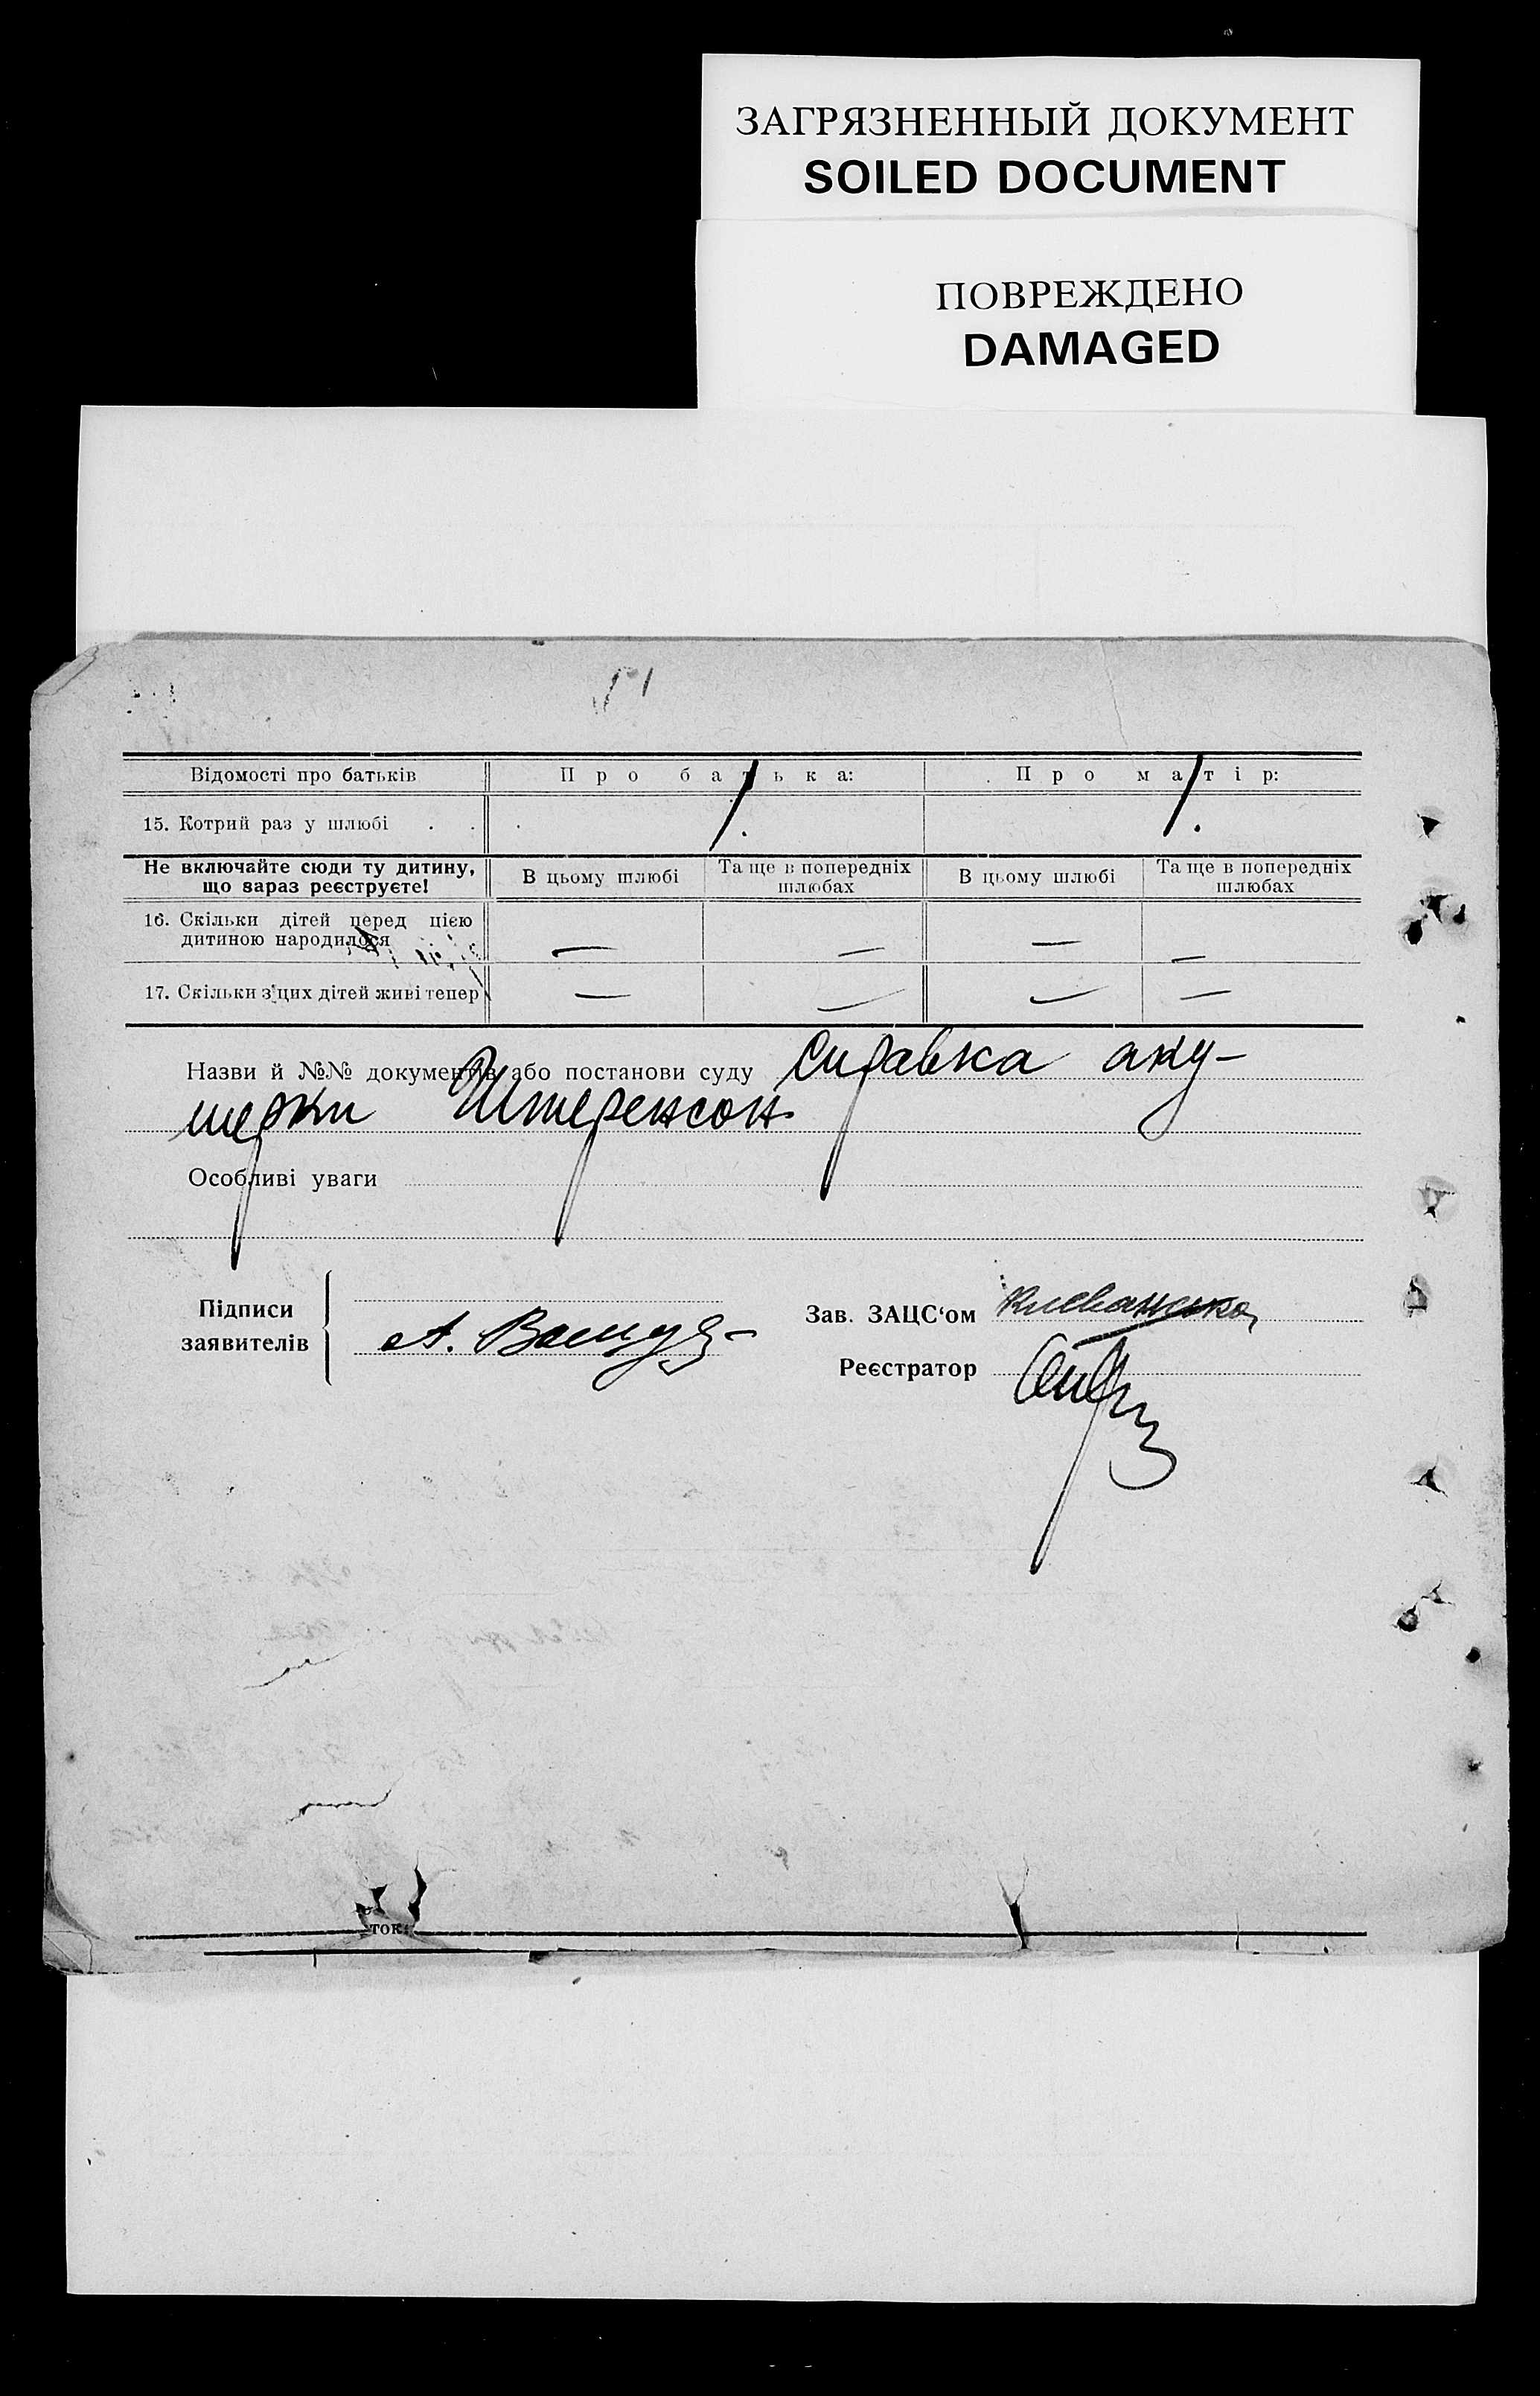 ЗАГРЯЗНЕННЫЙ ДОКУМЕНТ
SOILED DOCUMENT
ПОВРЕЖДЕНО
DAMAGED
Відомості про батьків Про батька: Про матір:
15. Котрий раз у шлюбі . . . 1. 1.
Не включайте сюди ту дитину, що зараз реєструєте! В цьому шлюбі Та ще в попередніх шлюбах В цьому шлюбі Та ще в попередніх шлюбах
16. Скільки дітей перед цією дитиною народилося — — — —
17. Скільки з цих дітей живі тепер — — — —
Назви й №№ документів або постанови суду Справка аку-
шерки Штеренсон
Особливі уваги
Підписи
заявителів
А.
Зав. ЗАЦС‘ом
Реєстратор
ток: